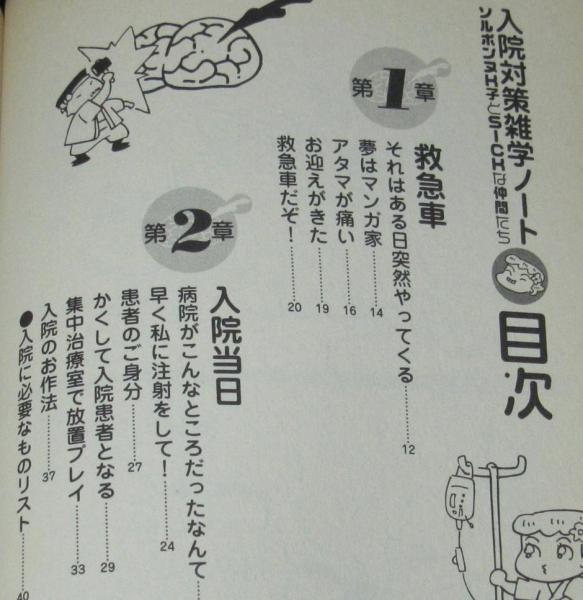 入院対策雑学ノート
ソルボンヌK子とSICKな仲間たち
目次
第1章
救急車
それはある日突然やってくる…………12
夢はマンガ家…………14
アタマが痛い…………16
お迎えがきた…………19
救急車だぞ!…………20
第2章
入院当日
病院がこんなところだったなんて……
早く私に注射をして!…………24
患者のご身分…………27
かくして入院患者となる…………29
集中治療室で放置プレイ…………33
入院のお作法…………37
●入院に必要なものリスト…………40